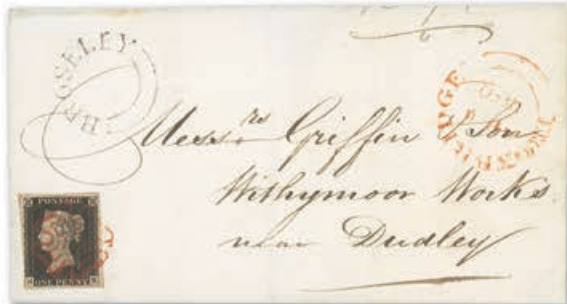 BROSELEY
Messrs Griffin & Son
Withymoor Works
near Dudley
POSTAGE
ONE PENNY